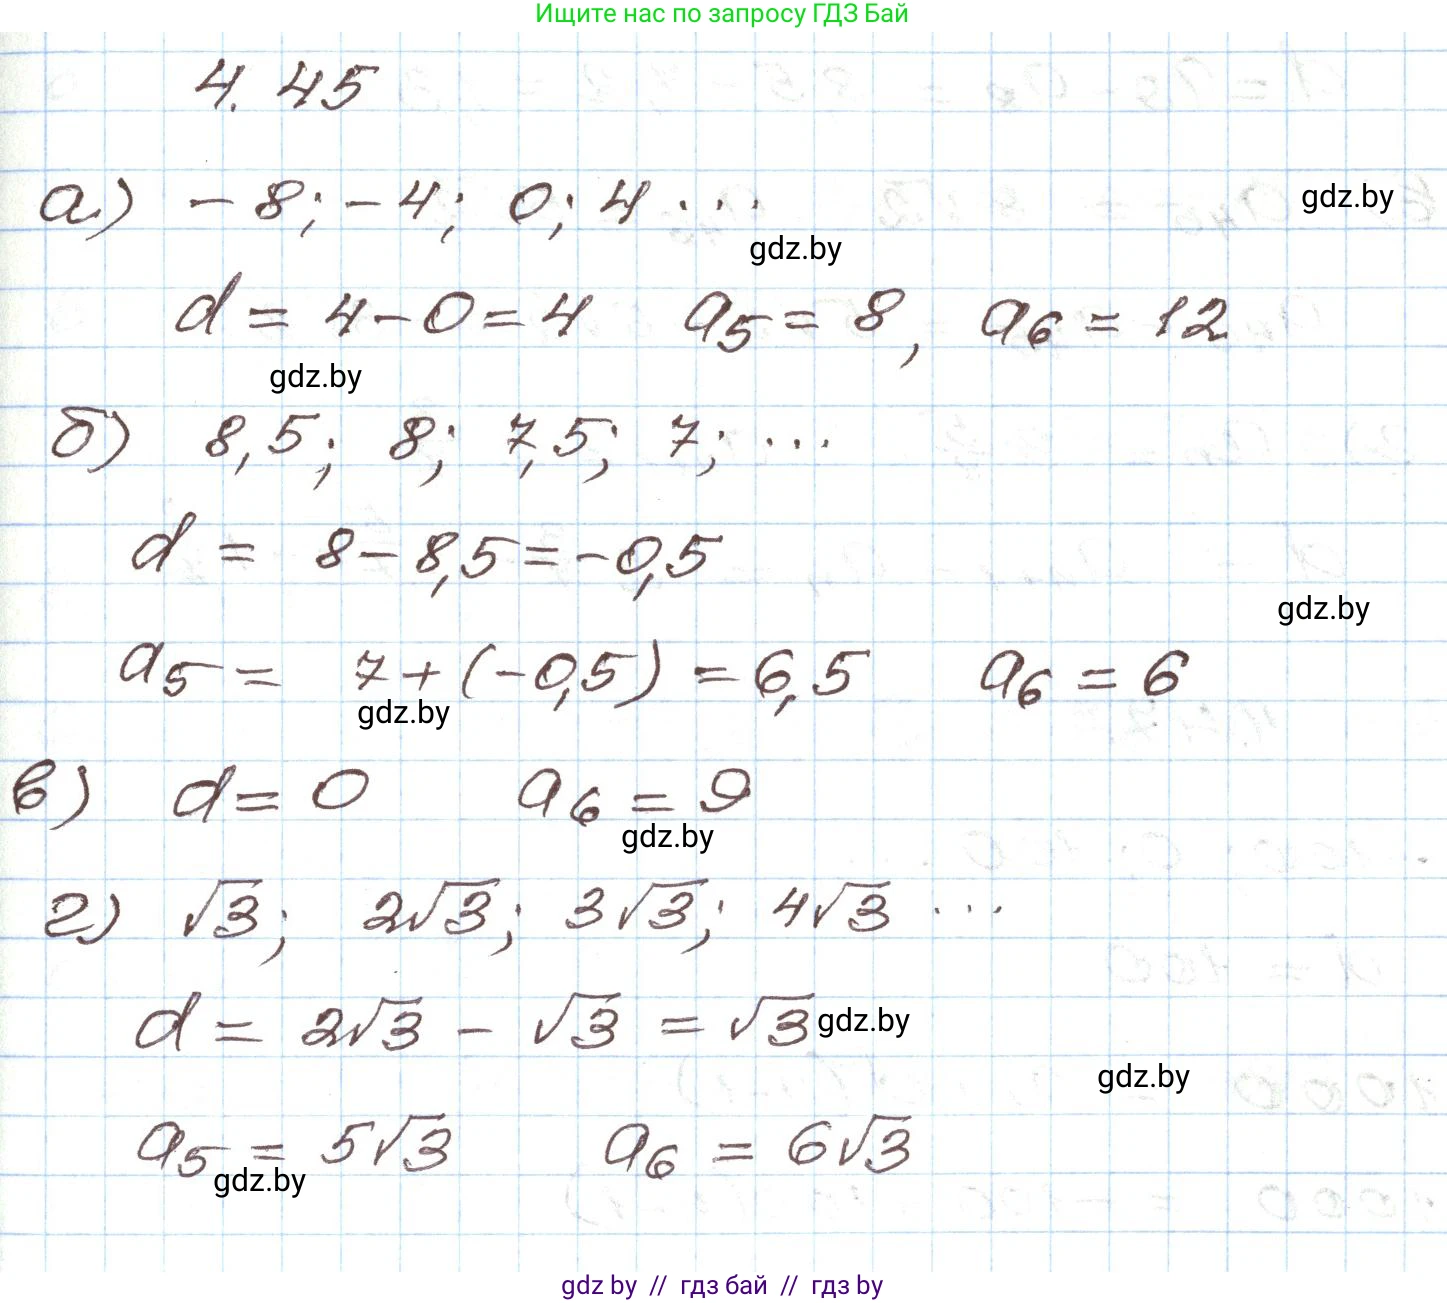 Ищите нас по запросу ГДЗ Бай
4.45
а) -8; -4; 0; 4 ...
gdz.by
gdz.by
d = 4-0=4 a₅= 8, a₆ = 12
gdz.by
б) 8,5; 8; 7,5; 7; ...
d = 8-8,5=-0,5
gdz.by
a₅ = 7+(-0,5) = 6,5 a₆ = 6
gdz.by
в) d= 0 a₆ = 9
gdz.by
г) √3; 2√3; 3√3; 4√3 ...
d = 2√3 - √3 = √3
gdz.by
gdz.by
a₅ = 5√3 a₆ = 6√3
gdz.by
gdz by // гдз бай // гдз by